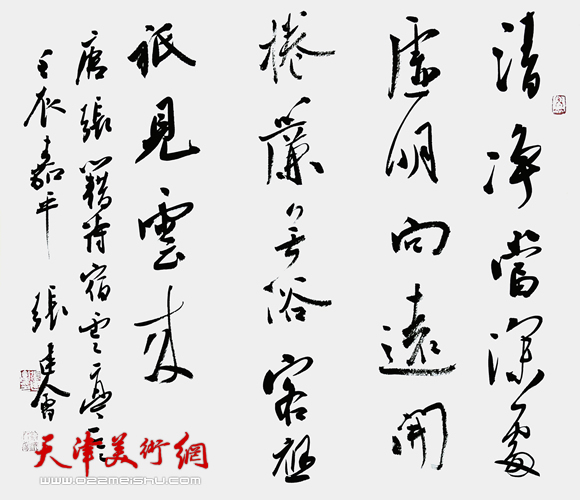 清净當深處
虛明向遠開
捲簾無俗客
祗見雲來
唐張籍詩宿雲亭
壬辰嘉平 張建會
天津美術網
www.022meishu.com